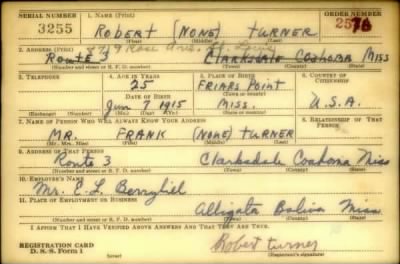 SERIAL NUMBER 1. NAME (Print) ORDER NUMBER
3255 ROBERT (NONE) TURNER
(First) (Middle) (Last)
2. ADDRESS (Print)
Route 3 Clarksdale COAHOMA MISS
(Number and street or R. F. D. number) (Town) (County) (State)
3. TELEPHONE 4. AGE IN YEARS 5. PLACE OF BIRTH 6. COUNTRY OF CITIZENSHIP
25 FRIARS POINT
DATE OF BIRTH (Town or county)
7 1915 MISS. U.S.A.
(Exchange) (Number) (Mo.) (Day) (Yr.) (State or country)
7. NAME OF PERSON WHO WILL ALWAYS KNOW YOUR ADDRESS 8. RELATIONSHIP OF THAT PERSON
MR. FRANK (NONE) TURNER
(Mr., Mrs., Miss) (First) (Middle) (Last)
9. ADDRESS OF THAT PERSON
Route 3 Clarksdale Coahoma Miss
(Number and street or R. F. D. number) (Town) (County) (State)
10. EMPLOYER'S NAME
Mr. E. L. Berryhill
11. PLACE OF EMPLOYMENT OR BUSINESS
Alligata Boliva Miss
(Number and street or R. F. D. number) (Town) (County) (State)
I AFFIRM THAT I HAVE VERIFIED ABOVE ANSWERS AND THAT THEY ARE TRUE.
REGISTRATION CARD Robert turner
D. S. S. Form 1 (Registrant's signature)